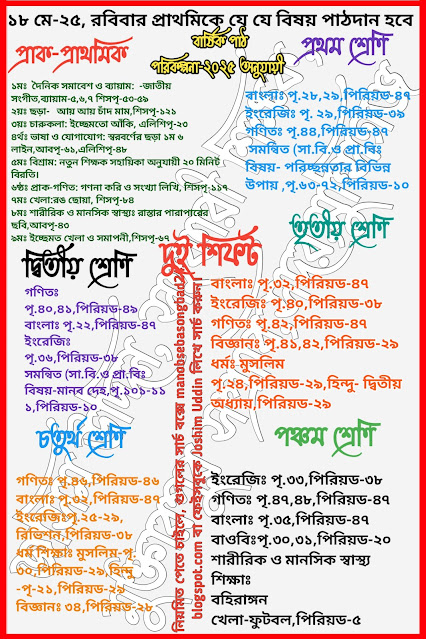 ১৮ মে-২৫, রবিবার প্রাথমিকে যে যে বিষয় পাঠদান হবে
বার্ষিক পাঠ
পরিকল্পনা-২০২৫ অনুযায়ী
প্রাক-প্রাথমিক
১মঃ দৈনিক সমাবেশ ও ব্যায়াম: -জাতীয়
সংগীত,ব্যায়াম-৫,৬,৭ শিসপৃ-৫৩-৫৯
২য়ঃ ছড়া- আয় আয় চাঁদ মাম,শিসপৃ-১২১
৩য়ঃ চারুকলা: ইচ্ছেমতো আঁকি, এলিশিপৃ-২৩
৪র্থঃ ভাষা ও যোগাযোগ: স্বরবর্ণের ছড়া ১ম ৩
লাইন,আবপৃ-৬১,এলিশিপৃ-৪৮
৫মঃ বিশ্রাম: নতুন শিক্ষক সহায়িকা অনুযায়ী ২০ মিনিট
বিরতি।
৬ষ্ঠঃ প্রাক-গণিত: গণনা করি ও সংখ্যা লিখি, শিসপৃ-১১৭
৭মঃ খেলা:রঙ ছোয়া, শিসপৃ-৮৪
৮মঃ শারীরিক ও মানসিক স্বাস্থ্যঃ রাস্তার পারাপারের
ছবি,আবপৃ-৪৩
৯মঃ ইচ্ছেমত খেলা ও সমাপনী,শিসপৃ-৬৭
প্রথম শ্রেণি
বাংলাঃ পৃ.২৮,২৯,পিরিয়ড-৪৭
ইংরেজিঃ পৃ. ২৯,পিরিয়ড-৩৯
গণিতঃ পৃ.৪৪,পিরিয়ড-৪৭
সমন্বিত (সা.বি.ও প্রা.বিঃ
বিষয়- পরিচ্ছন্নতার বিভিন্ন
উপায় ,পৃ.৬৩-৭২,পিরিয়ড-১০
দ্বিতীয় শ্রেণি
গণিতঃ
পৃ.৪০,৪১,পিরিয়ড-৪৯
বাংলাঃ পৃ.২২,পিরিয়ড-৪৭
ইংরেজিঃ
পৃ.৩৬,পিরিয়ড-৩৮
সমন্বিত (সা.বি.ও প্রা.বিঃ
বিষয়-মানব দেহ,পৃ.১০১-১১
১,পিরিয়ড-১০
দুই শিফট
নিয়মিত পেতে চাইলে, গুগলের সার্চ বক্সে manobsebasongbad2.
blogspot.com বা ফেইসবুকে Joshim Uddin লিখে সার্চ করুন।
তৃতীয় শ্রেণি
বাংলাঃ পৃ.৩২,পিরিয়ড-৪৭
ইংরেজিঃ পৃ.৪০,পিরিয়ড-৩৮
গণিতঃ পৃ.৪২,পিরিয়ড-৪৭
বিজ্ঞানঃ পৃ.৪১,৪২,পিরিয়ড-২৯
ধর্মঃ মুসলিম
পৃ.২৪,পিরিয়ড-২৯,হিন্দু- দ্বিতীয়
অধ্যায়,পিরিয়ড-২৯
চতুর্থ শ্রেণি
গণিতঃ পৃ.৪৬,পিরিয়ড-৪৬
বাংলাঃ পৃ.৩২,পিরিয়ড-৪৭
ইংরেজিঃপৃ.২৫-২৯,
রিভিশন,পিরিয়ড-৩৮
ধর্ম শিক্ষাঃ মুসলিম-পৃ.
৩০,পিরিয়ড-২৯,হিন্দু
-পৃ-২১,পিরিয়ড-২৯
বিজ্ঞানঃ ৩৪,পিরিয়ড-২৮
পঞ্চম শ্রেণি
ইংরেজিঃ পৃ.৩৩,পিরিয়ড-৩৮
গণিতঃ পৃ.৪৭,৪৮,পিরিয়ড-৪৭
বাংলাঃ পৃ.৩৫,পিরিয়ড-৪৭
বাওবিঃপৃ.৩০,৩১,পিরিয়ড-২০
শারীরিক ও মানসিক স্বাস্থ্য
শিক্ষাঃ
বহিরাঙ্গন
খেলা-ফুটবল,পিরিয়ড-৫